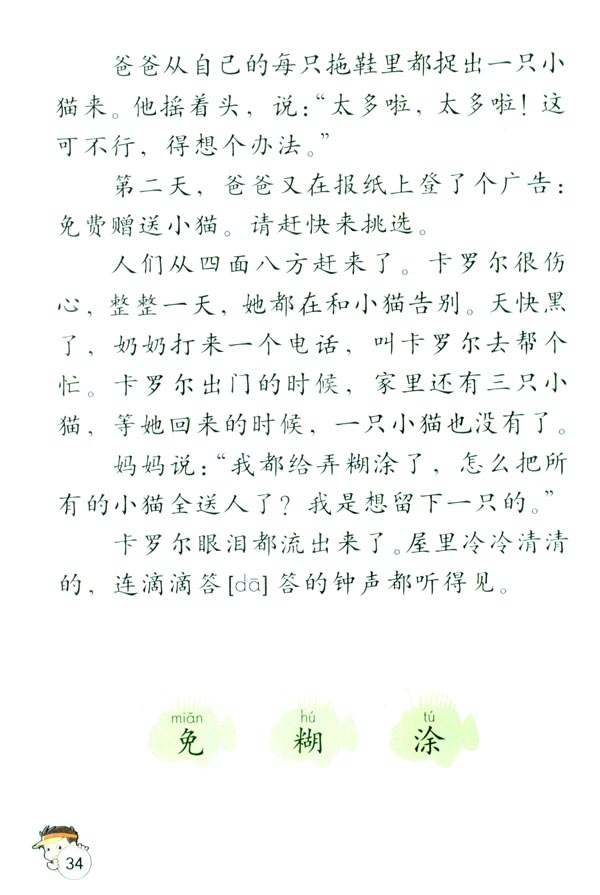 爸爸从自己的每只拖鞋里都捉出一只小
猫来。他摇着头，说：“太多啦，太多啦！这
可不行，得想个办法。”
第二天，爸爸又在报纸上登了个广告：
免费赠送小猫。请赶快来挑选。
人们从四面八方赶来了。卡罗尔很伤
心，整整一天，她都在和小猫告别。天快黑
了，奶奶打来一个电话，叫卡罗尔去帮个
忙。卡罗尔出门的时候，家里还有三只小
猫，等她回来的时候，一只小猫也没有了。
妈妈说：“我都给弄糊涂了，怎么把所
有的小猫全送人了？我是想留下一只的。”
卡罗尔眼泪都流出来了。屋里冷冷清清
的，连滴滴答[dā]答的钟声都听得见。
miǎn hú tú
免 糊 涂
34